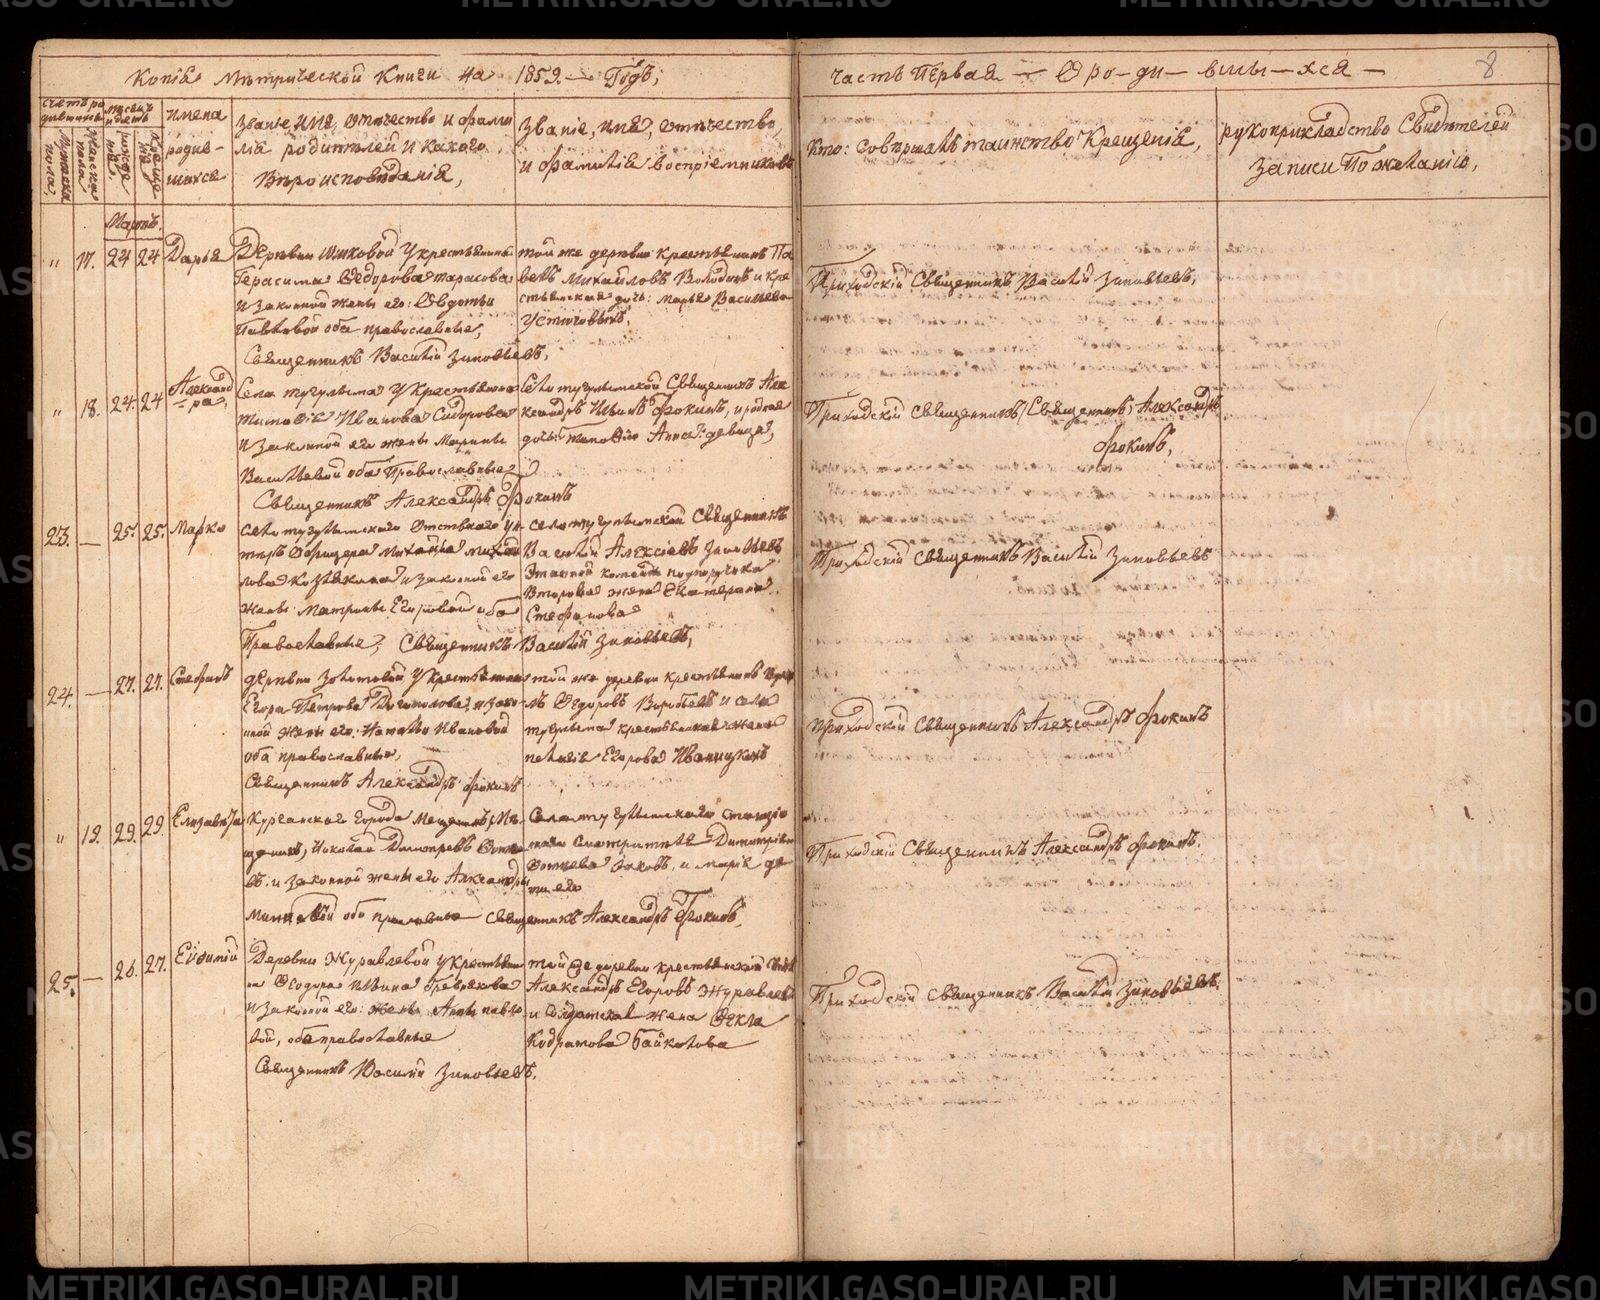 Копія Метрической Книги на 1859. — Годъ,
часть Первая — О ро-ди-вшы-хся —
8
счетъ родившихся
мужеска пола,
женска пола
месяцъ и день
рожденія
крещенія
имена
родив-
шихся
Званіе, имя, отчество и фами
лія родителей и какого
вѣроисповѣданія,
Званіе, имя, отчество,
и фамилія воспріемниковъ
Кто: совѣршалъ таинство Крещенія,
рукоприкладство Свидѣтелей
записи По желанію,
Мартъ.
" 17. 24 24 Дарья
Деревни Шиковой У крестьянина
Герасима Федорова Тарасова
и Законной жены его: Евдотьи
оба православные,
Священникъ Василій Зиновьевъ,
той же деревни крестьянинъ Па
велъ Михайловъ Володинъ и кре
стьянская дочь: Марья Васильева
Устюговыхъ,
Приходскій Священникъ Василій Зиновьевъ,
" 18. 24. 24 Александ
ра,
Села тугулыма У Крестьянина
Тимофея Иванова Сидорова
и Законной его жены Марины
Васильевой оба Православные
Священникъ Александръ Фокинъ
Села тугулымской Священникъ Але
ксандръ Ильинъ Фокинъ, и родная
дочь: Анна: девица,
Приходскій священникъ, Священникъ, Александръ
Фокинъ,
23. — 25. 25. Марко
Села тугулымскаго Отставнаго Ун
теръ Офицера Михайла Михай
лова и законной его
жены Матроны Егоровой оба
Православные, Священникъ Василій Зиновьевъ,
села тугулымской Священникъ
Василій Алексѣевъ Зиновьевъ
Этапной команды подпоручика
Второва жена Екатерина
Стефанова
Приходскій Священникъ Василій Зиновьевъ
24. — 27. 27. Стефанъ
деревни Золотовой У Крестьянина
Егора Петрова и зако-
нной жены его: Натальи Ивановой
оба православные,
Священникъ Александръ Фокинъ
той же деревни крестьянинъ
Федоровъ Воробьевъ и села
тугулыма крестьянская жена
пелагія Егорова Иваницкихъ
Приходскій Священникъ Александръ Фокинъ
" 19. 29. 29. Елизавѣта
Курганскаго города Мещанинъ
Николай Димитревъ
и законной жены его Александры
оба православные Священникъ Александръ Фокинъ,
Села тугулымскаго станціо
ннаго Смотрителя Димитрія
Яковъ, и Марія де
ти его
Приходскій Священникъ Александръ Фокинъ.
25. — 26. 27. Евѳимій
Деревни Журавлевой У крестьяни
на Феодора Ильина
и Законной его: жены Анны павло
вой, оба православные
Священникъ Василій Зиновьевъ.
той же деревни крестьянской сынъ
Александръ Егоровъ Журавлевъ
и Солдатская жена Фекла
Кодратова Байкалова
Приходскій Священникъ Василій Зиновьевъ.
METRIKI.GASO-URAL.RU